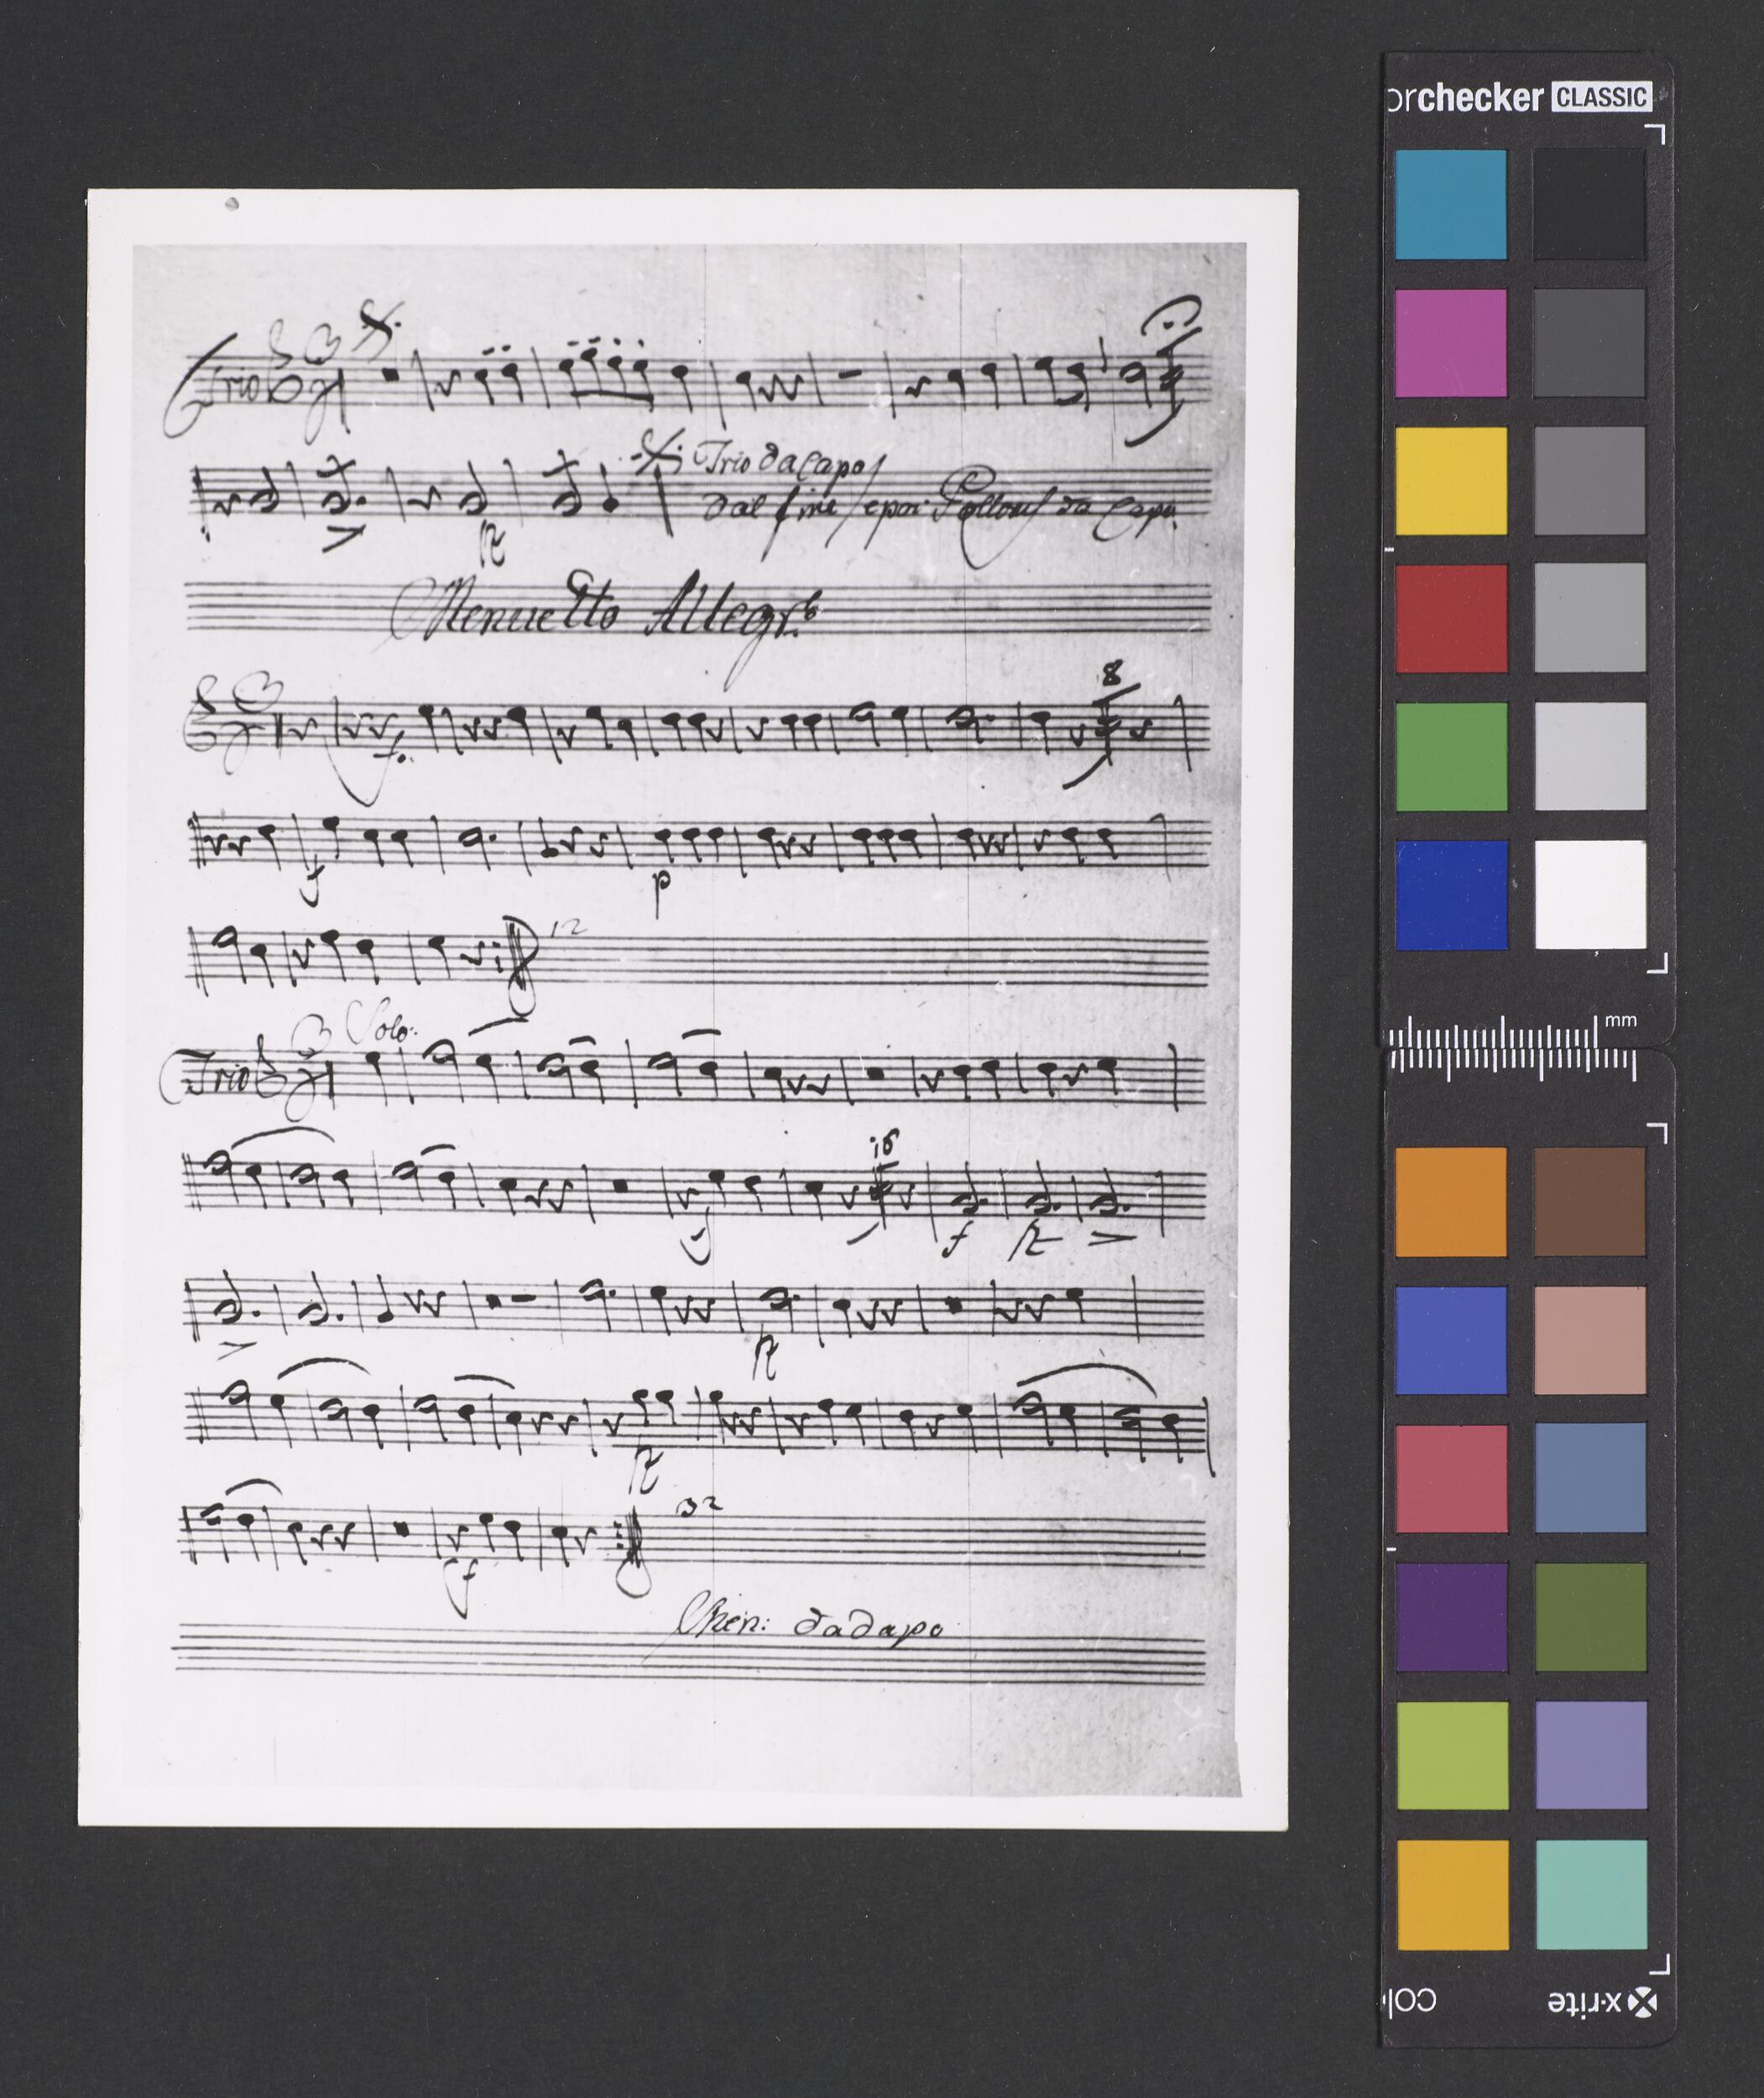 orchecker CLASSIC
Trio
Trio da Capo
dal fine / e poi
da Capo
Menuetto Allegr.to
8
f.
f
p
12
Trio
Solo:
16
f
ft
ft
ft
32
f
Men: da Capo
mm
x-rite
col